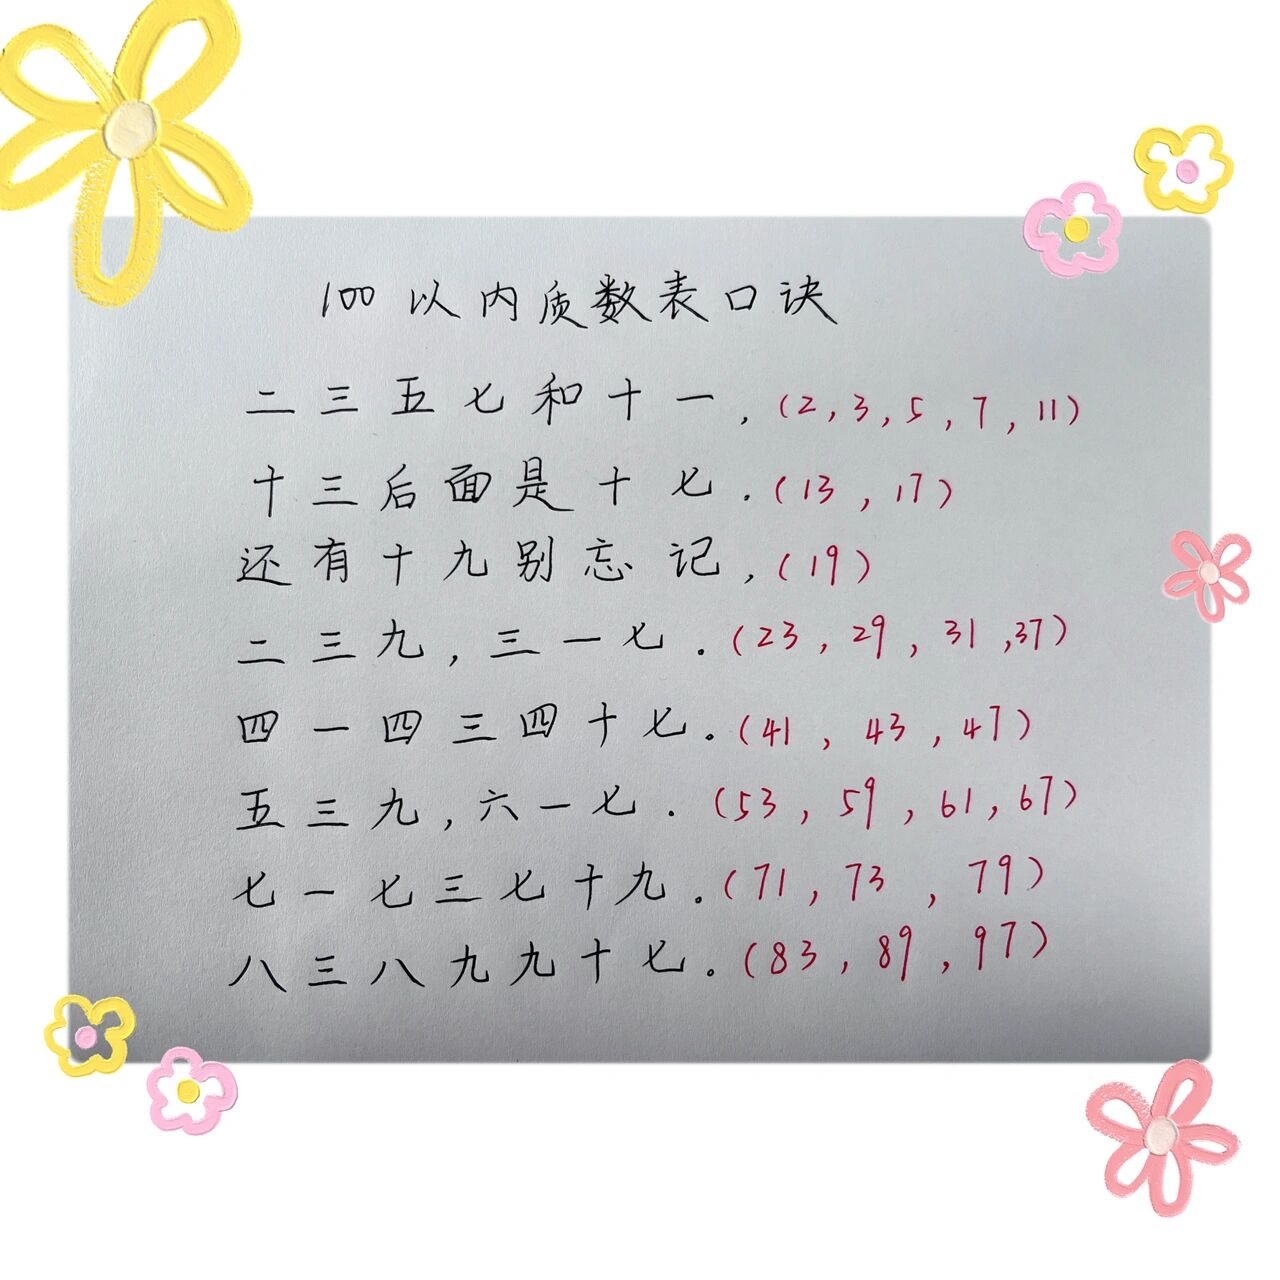 100以内质数表口诀
二三五七和十一,(2,3,5,7,11)
十三后面是十七.(13,17)
还有十九别忘记,(19)
二三九,三一七.(23,29,31,37)
四一四三四十七.(41,43,47)
五三九,六一七.(53,59,61,67)
七一七三七十九.(71,73,79)
八三八九九十七.(83,89,97)